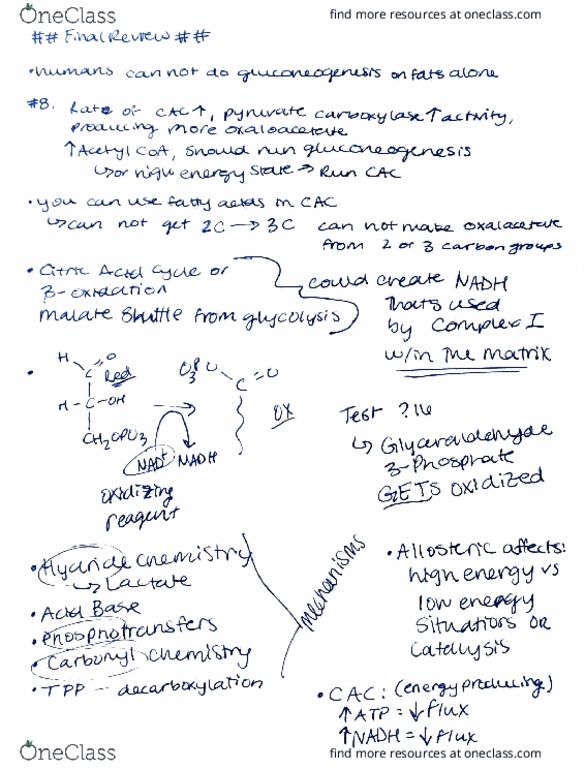 OneClass
find more resources at oneclass.com
## Final Review ##
•humans can not do gluconeogenesis on fats alone
#8. Rate of CAC↑, pyruvate carboxylase ↑ activity,
producing more oxaloacetate
↑Acetyl CoA, should run gluconeogenesis
↳or high energy state → Run CAC
•you can use fatty acids in CAC
↳can not get 2C → 3C
can not make oxalacetate
from 2 or 3 carbon groups
• Citric Acid Cycle or
β-oxidation
malate shuttle from glycolysis
could create NADH
thats used
by Complex I
w/in the matrix
H
O
C
Red
H - C - OH
CH₂OPO₃
NAD⁺ NADH
oxidizing
reagent
O₃PO
C = O
OX
Test ?16
↳ Glyceraldehyde
3-Phosphate
GETS oxidized
•Hydride chemistry
↳ Lactate
• Acid Base
• Phosphotransfers
• Carbonyl chemistry
• TPP - decarboxylation
mechanisms
• Allosteric affects:
high energy vs
low energy
situations or
catalysis
• CAC: (energy producing)
↑ATP = ↓flux
↑NADH = ↓flux
OneClass
find more resources at oneclass.com